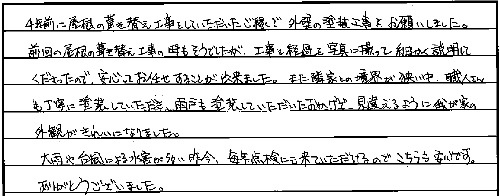 4年前に屋根の葺き替え工事をしていただいたご縁で 外壁の塗装工事をお願いしました。
前回の屋根の葺き替え工事の時もそうでしたが、工事の経過を写真に撮って 細かく説明して
くださったので、安心してお任せすることが出来ました。また隣家との境界が狭い中、職人さん
も丁寧に塗装していただき、雨戸も塗装していただいたおかげで 見違えるように我が家の
外観がきれいになりました。
大雨や台風による水害が多い昨今、毎年点検に来ていただけるのでこちらも安心です。
ありがとうございました。